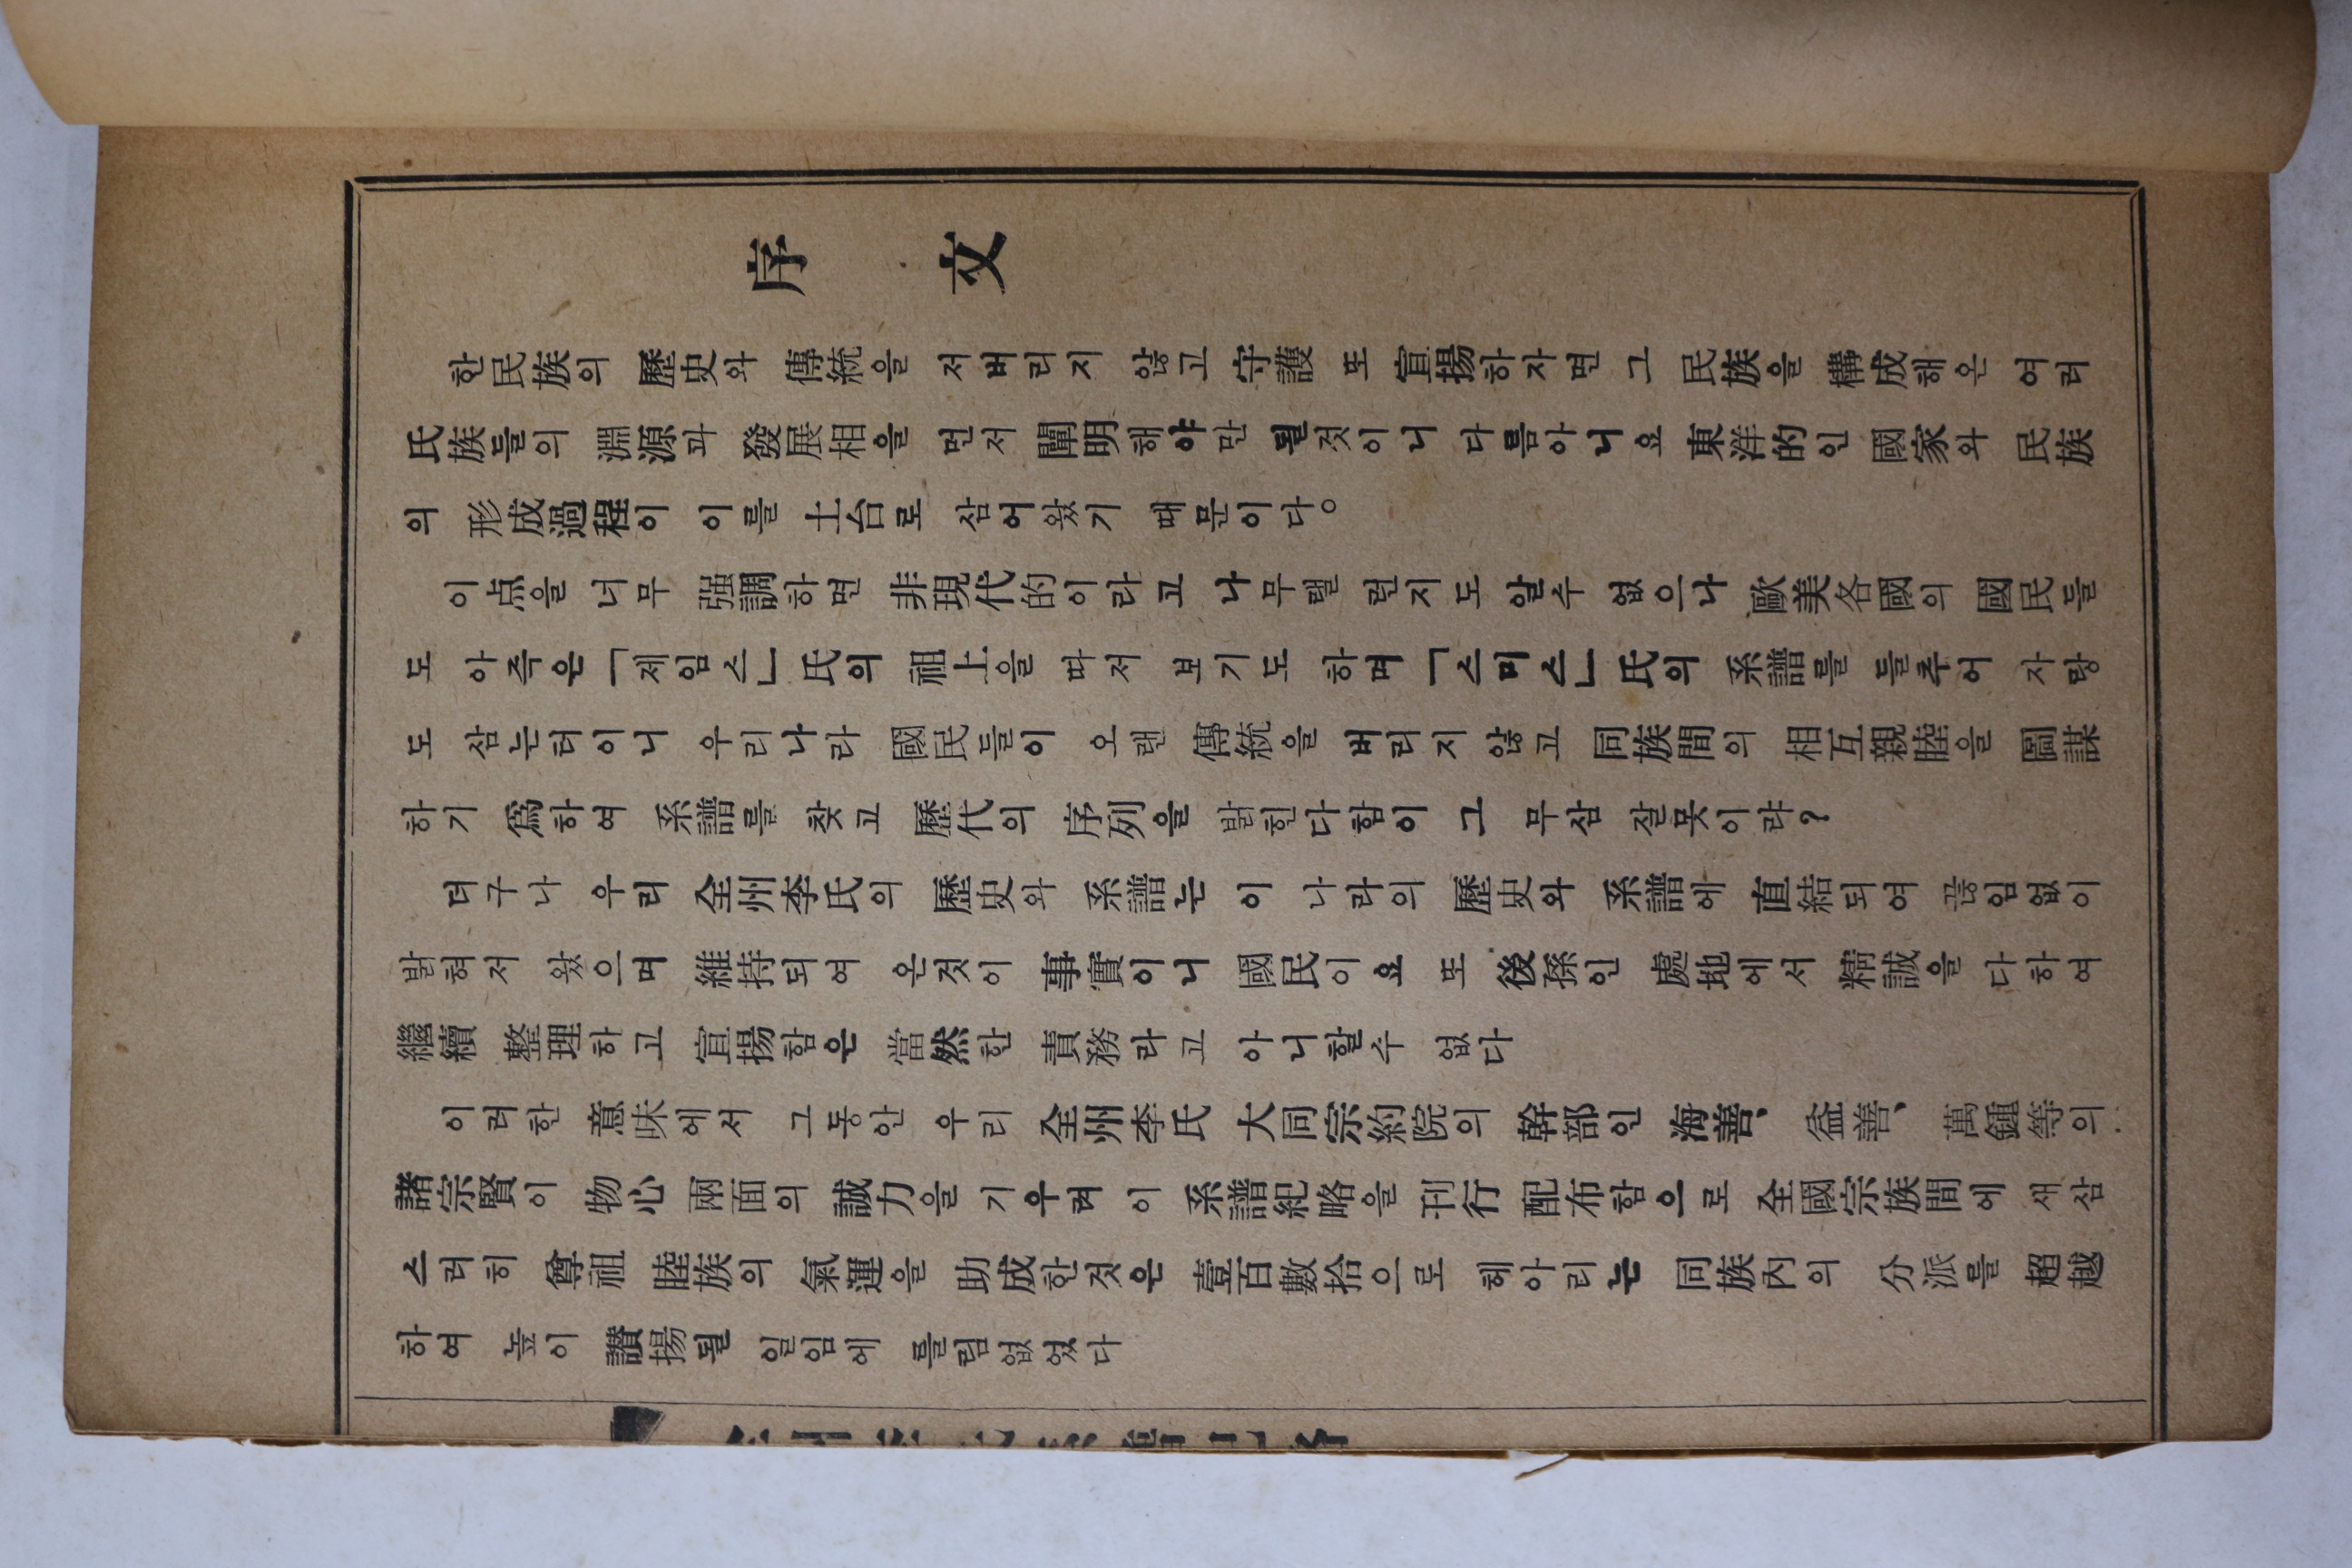 序文
한民族의 歷史와 傳統을 저버리지 않고 守護 또 宣揚하자면 그 民族을 構成해온 여러
氏族들의 淵源과 發展相을 먼저 闡明해야만 될것이니 다름아니요 東洋的인 國家와 民族
의 形成過程이 이를 土台로 삼어왔기 때문이다。
이点을 너무 强調하면 非現代的이라고 나무랠 런지도 알수 없으나 歐美各國의 國民들
도 아즉은「제임스」氏의 祖上을 따저 보기도 하며「스미스」氏의 系譜를 들추어 자랑
도 삼는터이니 우리나라 國民들이 오랜 傳統을 버리지 않고 同族間의 相互親睦을 圖謀
하기 爲하여 系譜를 찾고 歷代의 序列을 밝힌다함이 그 무삼 잘못이랴?
더구나 우리 全州李氏의 歷史와 系譜는 이 나라의 歷史와 系譜에 直結되여 끊임없이
밝혀저 왔으며 維持되여 온것이 事實이니 國民이요 또 後孫인 處地에서 精誠을 다하여
繼續 整理하고 宣揚함은 當然한 責務라고 아니할수 없다
이러한 意味에서 그동안 우리 全州李氏 大同宗約院의 幹部인 海善、益善、萬鍾等의
諸宗賢이 物心 兩面의 誠力을 기우려 이 系譜紀略을 刊行 配布함으로 全國宗族間에 새삼
스러히 尊祖 睦族의 氣運을 助成한것은 壹百數拾으로 헤아리는 同族內의 分派를 超越
하여 높이 讚揚될 일임에 틀림없었다